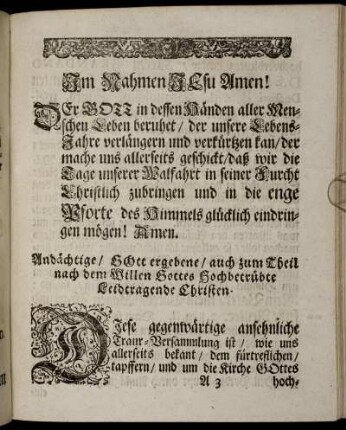 Im Nahmen JEsu Amen!
DEr GOTT in dessen Händen aller Men-
schen Leben beruhet / der unsere Lebens-
Jahre verlängern und verkürtzen kan / der
mache uns allerseits geschickt / daß wir die
Tage unserer Walfahrt in seiner Furcht
Christlich zubringen und in die enge
Pforte des Himmels glücklich eindrin-
gen mögen! Amen.
Andächtige / GOtt ergebene / auch zum Theil
nach dem Willen Gottes Hochbetrübte
Leidtragende Christen.
DIese gegenwärtige ansehnliche
Traur-Versammlung ist / wie uns
allerseits bekant / dem fürtreflichen /
tapffern / und um die Kirche GOttes
A 3 hoch-